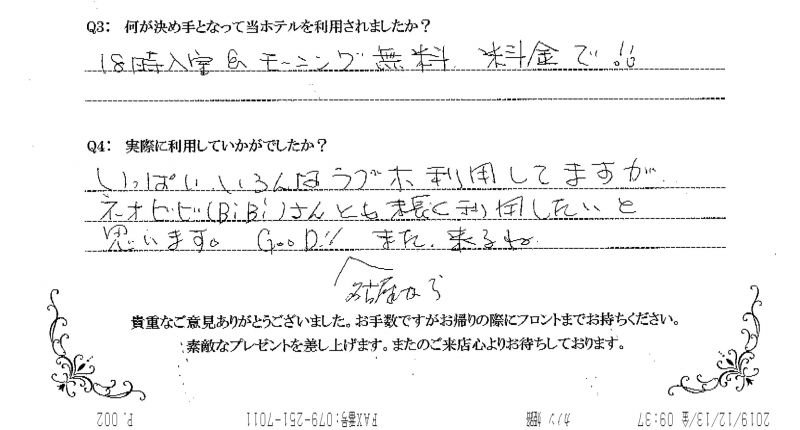 Q3: 何が決め手となって当ホテルを利用されましたか?
18時入室& モーニング無料 料金で!!
Q4: 実際に利用していかがでしたか?
いっぱいいろんなラブホ利用してますが
ネオビビ(BiBi)さんとも末長く利用したいと
思います。 GooD!! また、来るね
名古屋から
貴重なご意見ありがとうございました。お手数ですがお帰りの際にフロントまでお持ちください。
素敵なプレゼントを差し上げます。またのご来店心よりお待ちしております。
2019/12/13/金 09:37 カノン 姫路 FAX番号:079-251-7011 P. 002